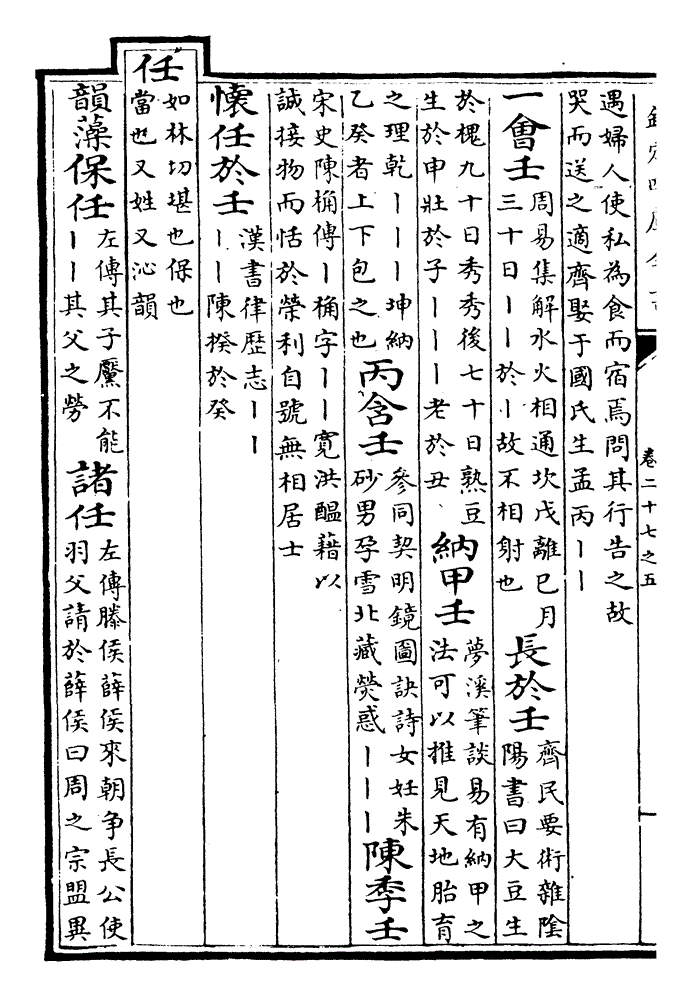 欽定四庫全書
卷二十七之五
遇婦人使私為食而宿焉問其行告之故
哭而送之適齊娶于國氏生孟丙丨丨
一會壬
周易集解水火相通坎戊離巳月
三十日丨丨於丨故不相射也
長於壬
齊民要術雜陰
陽書曰大豆生
於槐九十日秀秀後七十日熟豆
生於申壯於子丨丨丨老於丑
納甲壬
夢溪筆談易有納甲之
法可以推見天地胎育
之理乾丨丨丨坤納
乙癸者上下包之也
丙含壬
參同契明鏡圖訣詩女妊朱
砂男孕雪北藏熒惑丨丨丨
陳季壬
宋史陳桷傳丨桷字丨丨寛洪醞藉以
誠接物而恬於榮利自號無相居士
懷任於壬
漢書律歴志丨丨
丨丨陳揆於癸
任
如林切堪也保也
當也又姓又沁韻
韻藻保任
左傳其子黶不能
丨丨其父之勞
諸任
左傳滕侯薛侯來朝争長公使
羽父請於薛侯曰周之宗盟異